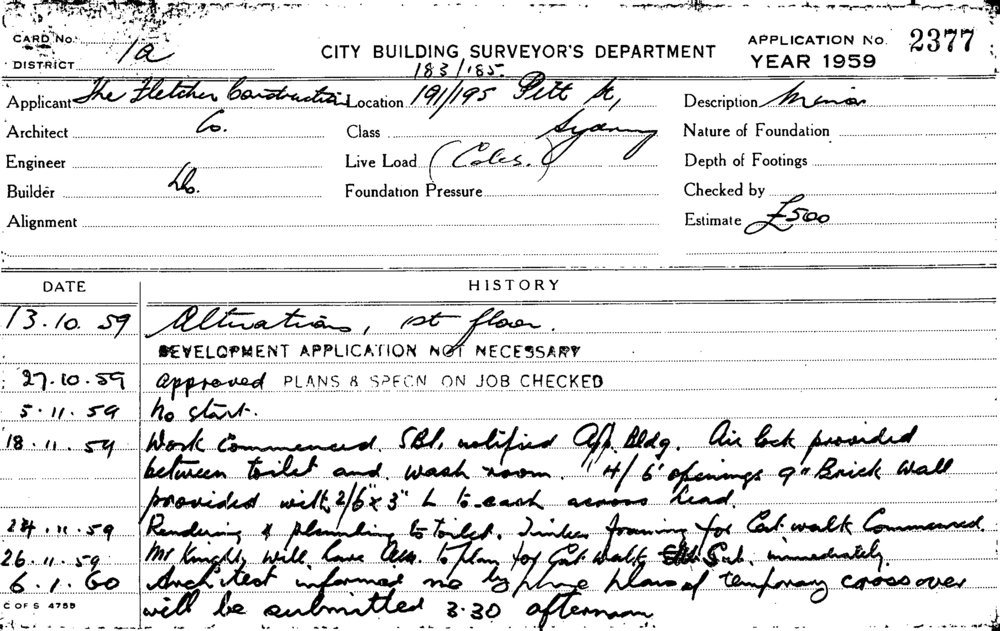 CARD No. 1a
DISTRICT
CITY BUILDING SURVEYOR'S DEPARTMENT
APPLICATION No. 2377
YEAR 1959
183/185
Applicant The Fletcher Construction Location 191/195 Pitt St, Description Minor
Architect Co. Class Sydney Nature of Foundation
Engineer Live Load (Coles.) Depth of Footings
Builder Do. Foundation Pressure Checked by
Alignment Estimate £500
DATE HISTORY
13.10.59 Alterations, 1st floor.
DEVELOPMENT APPLICATION NOT NECESSARY
27.10.59 Approved PLANS & SPECN ON JOB CHECKED
5.11.59 No start.
18.11.59 Work Commenced. notified App. Bldg. Air lock provided
between toilet and wash room. 4/6' openings 9" Brick Wall
provided with 2/6"x3" L to each across head.
24.11.59 Rendering & plumbing to toilet. Timber framing for Cat walk Commenced
26.11.59 Mr Knight, will have Am. to plan for Cat walk Sub. immediately.
6.1.60 Architect informed me by phone plans of temporary crossover
will be submitted 3.30 afternoon
C OF S 4755